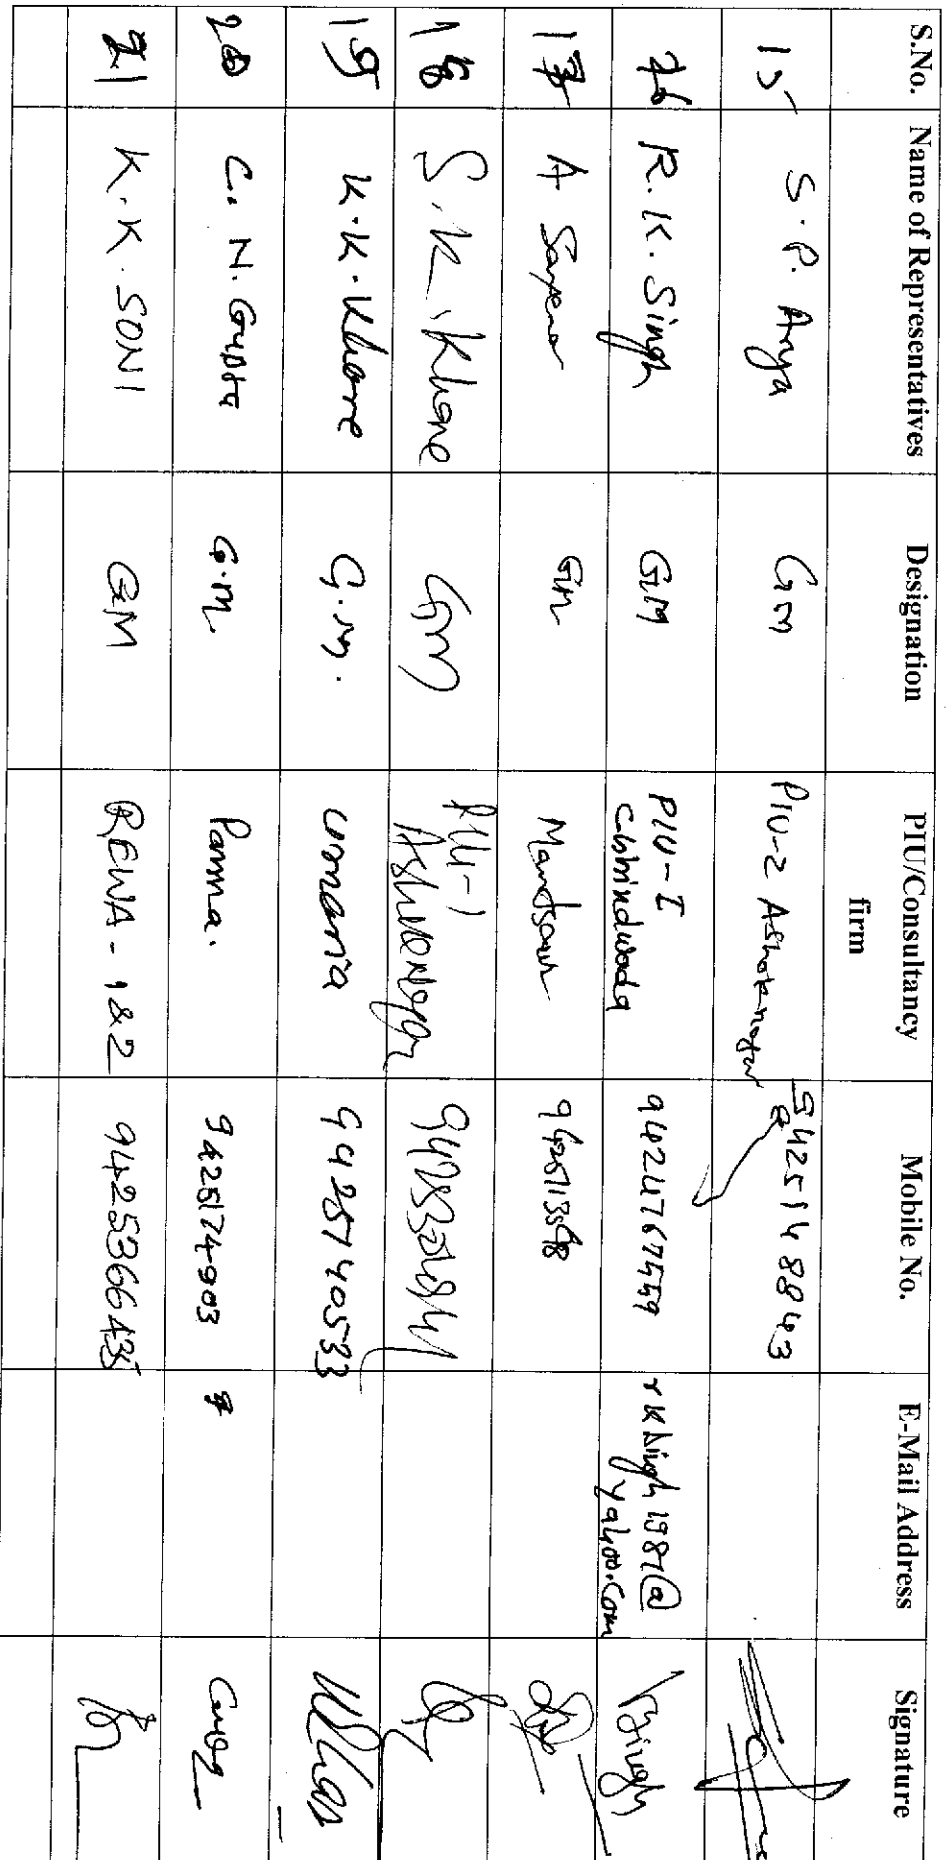 S.No. Name of Representatives Designation PIU/Consultancy firm Mobile No. E-Mail Address Signature
15 S.P. Arya Gm PIU-2 Ashoknagar 9425148843
16 R.K. Singh GM PIU-I Chhindwada 9424767459 rksingh1987@yahoo.com
17 A Saxena Gm Mandsaur
18 S.K. Khare Gm PIU-1 Ashoknagar
19 K.K. Khare G.m. Umaria
20 C. N. Gupta G.m. Panna. 9425174903
21 K.K. SONI GM REWA-1&2 9425366435